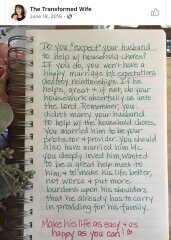 The Transformed Wife
June 18, 2016
Do you "expect" your husband
to help w/ household chores?
If you do, you won't have a
happy marriage b/c expectations
destroy relationships. If he
helps, great & if not, do your
housework cheerfully as unto
the Lord. Remember, you
didn't marry your husband
to help w/ the household chores.
You married him to be your
protector & provider. You should
also have married him b/c
you deeply loved him & wanted
to be a great help meet to
him, & to make his life better,
not worse & put more
burdens upon his shoulders
that he already has to carry
in providing for his family.
Make his life as easy & as
happy as you can!